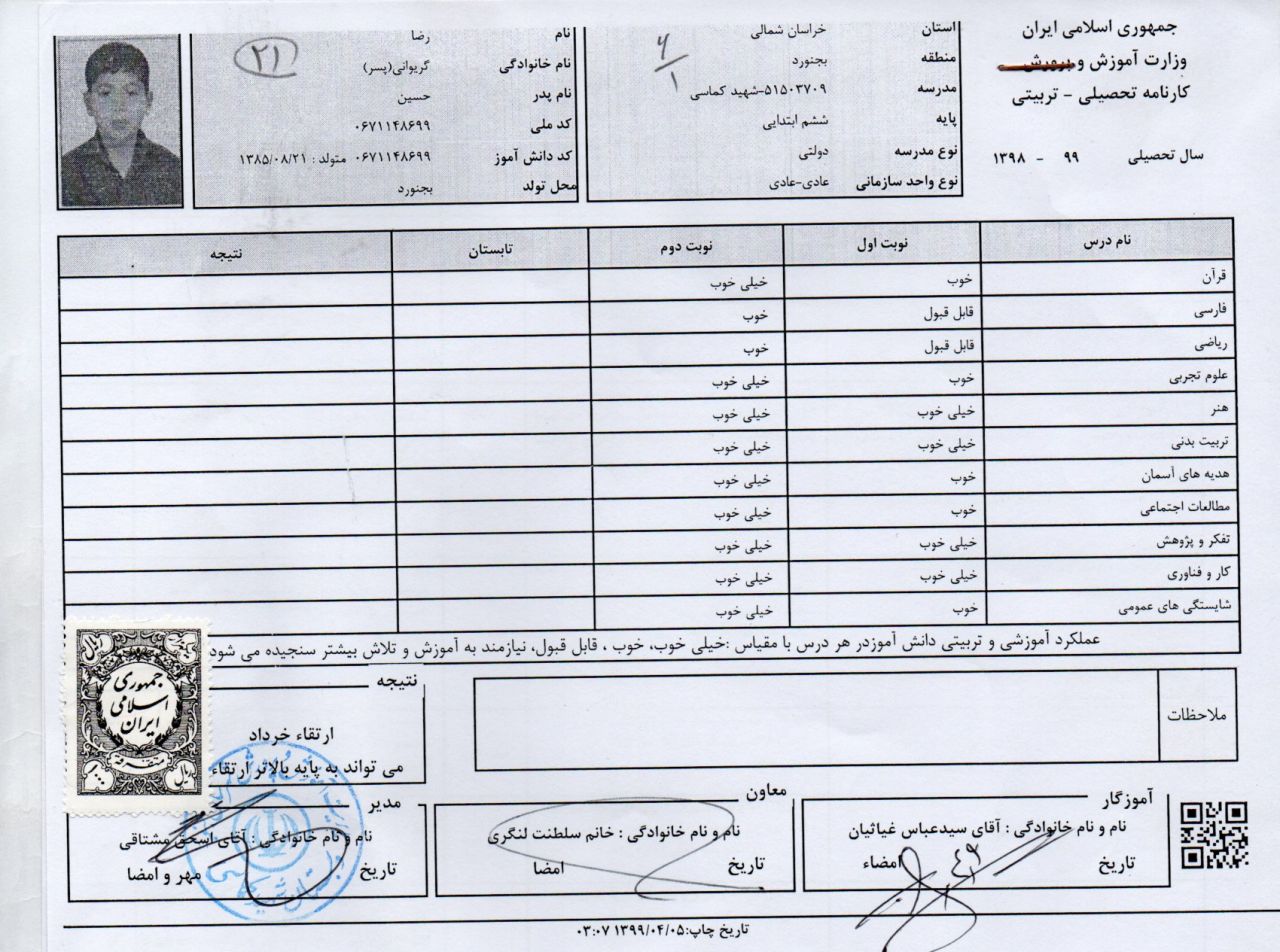 جمهوری اسلامی ایران
وزارت آموزش و پرورش
کارنامه تحصیلی - تربیتی
سال تحصیلی ۹۹ - ۱۳۹۸
استان خراسان شمالی
منطقه بجنورد
مدرسه ۵۱۵۰۳۷۰۹-شهید کماسی
پایه ششم ابتدایی
نوع مدرسه دولتی
نوع واحد سازمانی عادی-عادی
۶/۱
نام رضا
نام خانوادگی گریوانی(پسر)
نام پدر حسین
کد ملی ۰۶۷۱۱۴۸۶۹۹
کد دانش آموز ۰۶۷۱۱۴۸۶۹۹ متولد : ۱۳۸۵/۰۸/۲۱
محل تولد بجنورد
۲۱
نام درس نوبت اول نوبت دوم تابستان نتیجه
قرآن خوب خیلی خوب
فارسی قابل قبول خوب
ریاضی قابل قبول خوب
علوم تجربی خوب خیلی خوب
هنر خیلی خوب خیلی خوب
تربیت بدنی خیلی خوب خیلی خوب
هدیه های آسمان خوب خیلی خوب
مطالعات اجتماعی خوب خیلی خوب
تفکر و پژوهش خیلی خوب خیلی خوب
کار و فناوری خیلی خوب خیلی خوب
شایستگی های عمومی خوب خیلی خوب
عملکرد آموزشی و تربیتی دانش آموزدر هر درس با مقیاس :خیلی خوب، خوب ، قابل قبول، نیازمند به آموزش و تلاش بیشتر سنجیده می شود
ملاحظات
نتیجه
ارتقاء خرداد
می تواند به پایه بالاتر ارتقاء
ریال
جمهوری
اسلامی
ایران
متفرقه
ریال
آموزگار
نام و نام خانوادگی : آقای سیدعباس غیاثیان
تاریخ امضاء
معاون
نام و نام خانوادگی : خانم سلطنت لنگری
تاریخ امضا
مدیر
نام و نام خانوادگی : آقای اسحق مشتاقی
تاریخ مهر و امضا
تاریخ چاپ:۱۳۹۹/۰۴/۰۵ ۰۳:۰۷